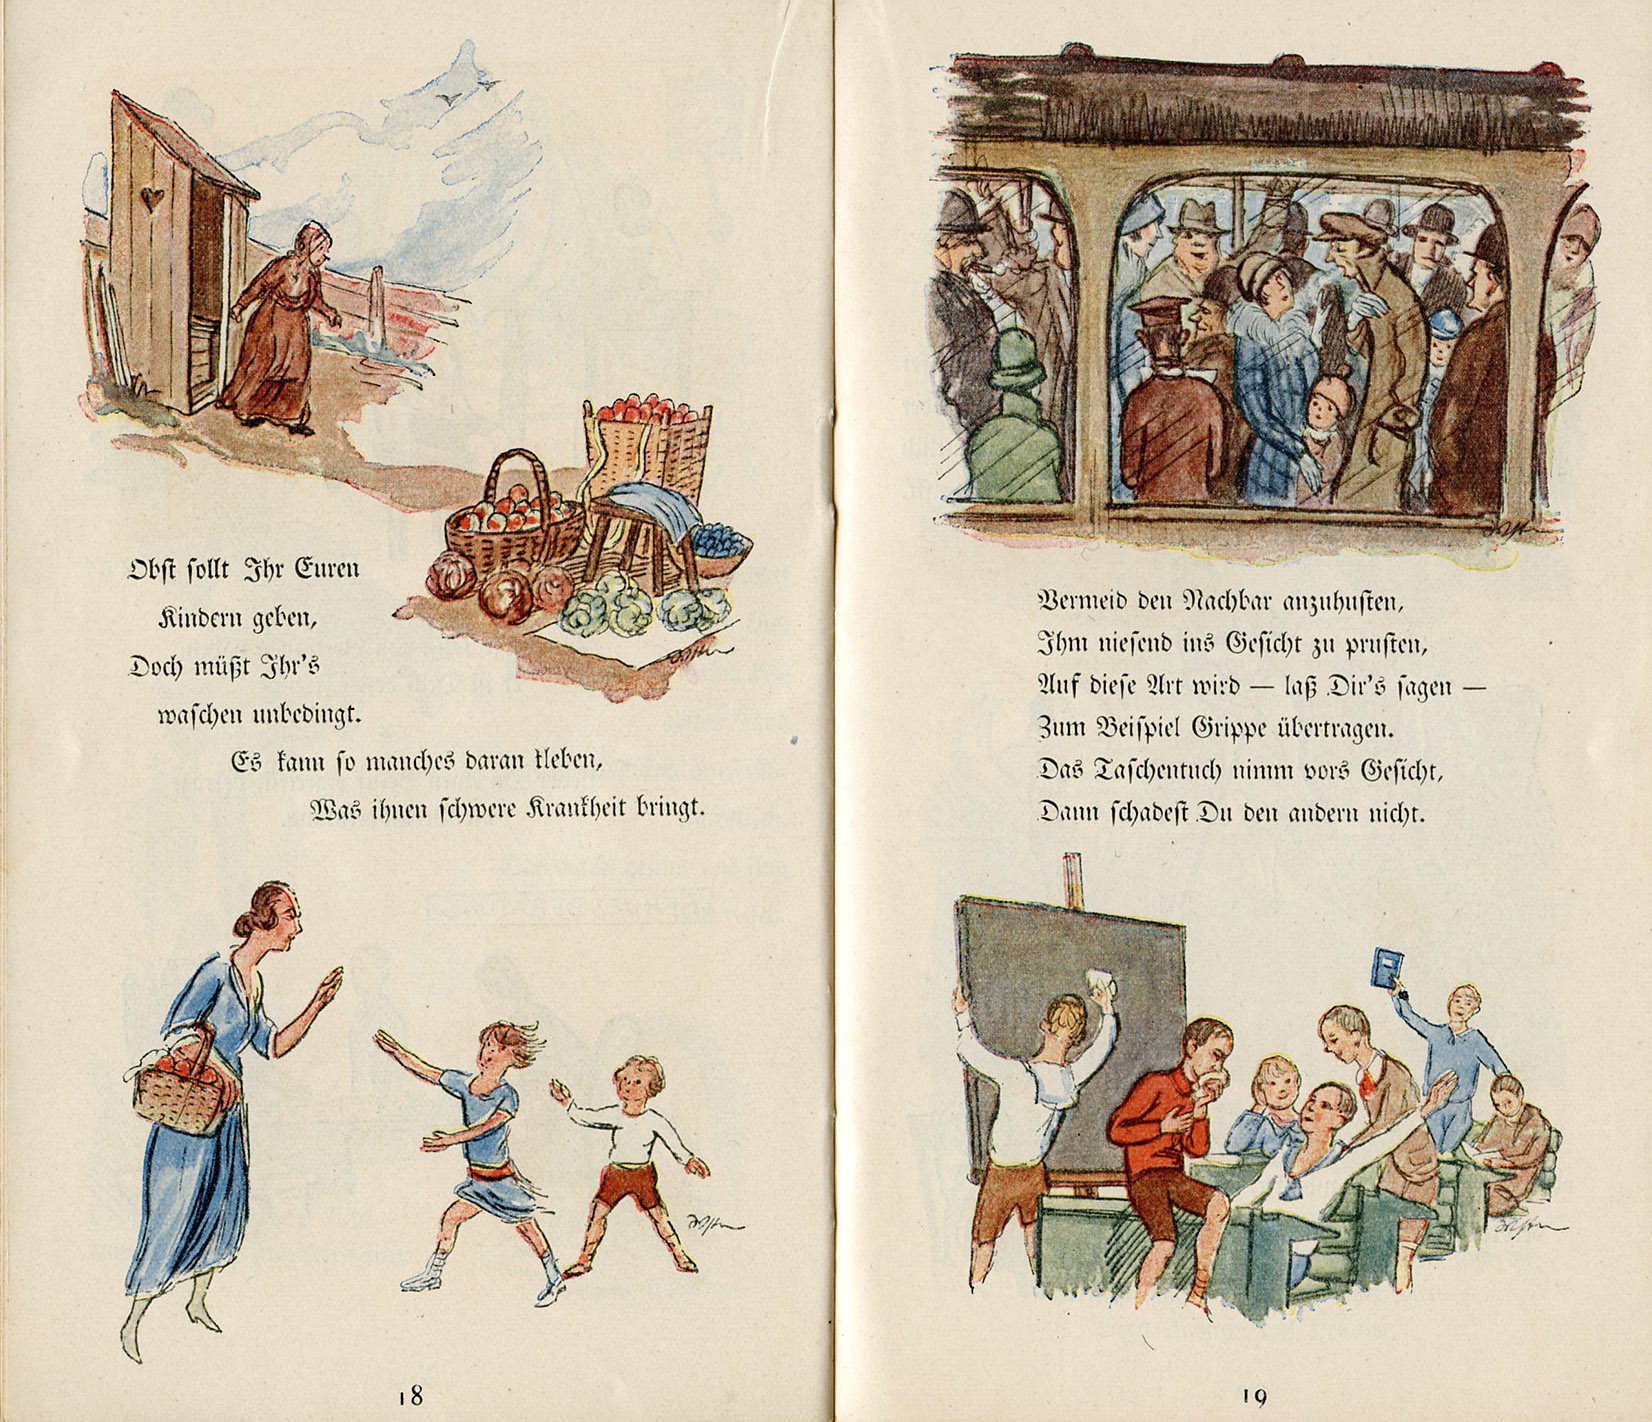 Obst sollt Ihr Euren
Kindern geben,
Doch müßt Ihr's
waschen unbedingt.
Es kann so manches daran kleben,
Was ihnen schwere Krankheit bringt.
18
Vermeid den Nachbar anzuhusten,
Ihm niesend ins Gesicht zu prusten,
Auf diese Art wird — laß Dir's sagen —
Zum Beispiel Grippe übertragen.
Das Taschentuch nimm vors Gesicht,
Dann schadest Du den andern nicht.
19